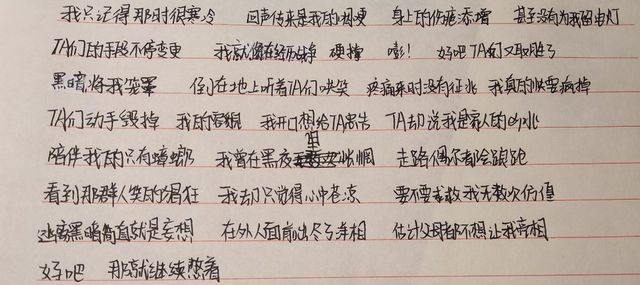 我只记得那时很寒冷 回声传来是我的哽 身上的伤疤添增 甚至没有为我留电灯
TA们的手段不停变更 我就像在经历战争 硬撑 嘭！ 好吧TA们又取胜了
黑暗将我笼罩 倒在地上听着TA们哄笑 疼痛来时没有征兆 我真的快要病掉
TA们动手毁掉 我的容貌 我开口想给TA忠告 TA却说我是家人的
陪伴我的只有蟑螂 我曾在黑夜里惆 走路偶尔都会踉跄
看到那群人笑的猖狂 我却只觉得心中苍凉 要不要求救我无数次估值
逃离黑暗简直就是妄想 在外人面前出尽了洋相 估计父母都不想让我亮相
好吧 那就继续憋着